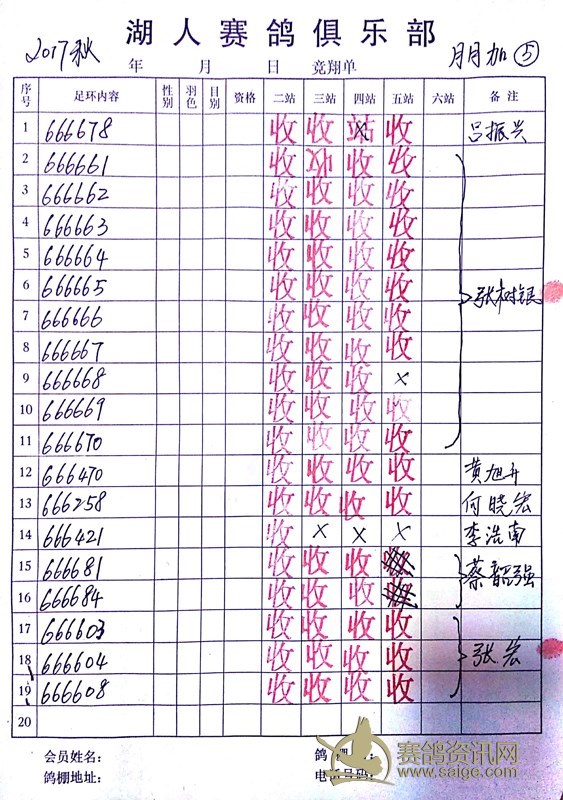 湖人赛鸽俱乐部
2017秋 年 月 日 竞翔单 月月加 ⑤
序号 足环内容 性别 羽色 目别 资格 二站 三站 四站 五站 六站 备注
1 666678 收 收 收 吕振兴
2 666661 收 收 收
3 666662 收 收 收 收
4 666663 收 收 收 收
5 666664 收 收 收 收
6 666665 收 收 收 收 张树银
7 666666 收 收 收 收
8 666667 收 收 收 收
9 666668 收 收 收 ×
10 666669 收 收 收 收
11 666670 收 收 收 收
12 666470 收 收 收 收 黄旭升
13 666258 收 收 收 收 何晓宏
14 666421 收 × × × 李浩南
15 666681 收 收 收 蔡韶强
16 666684 收 收 收
17 666603 收 收 收 收
18 666604 收 收 收 收 张宏
19 666608 收 收 收 收
20
会员姓名: 鸽
鸽棚地址: 电话号码:
赛鸽资讯网
www.saige.com